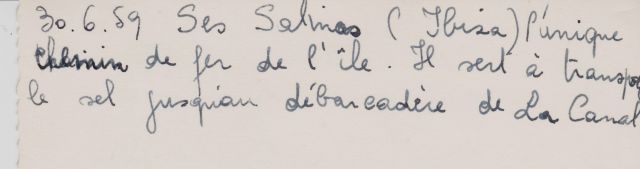 30.6.59 Ses Salinas (Ibiza) l'unique
chemin de fer de l'île. Il sert à transpor
le sel jusqu'au débarcadère de La Canal